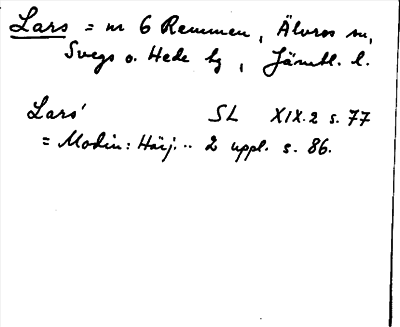 Lars = nr 6 Remmen, Älvros sn,
Svegs o. Hede tg, Jämtl. l.
Lars' SL XIX.2 s. 77
= Modin: Härj... 2 uppl. s. 86.